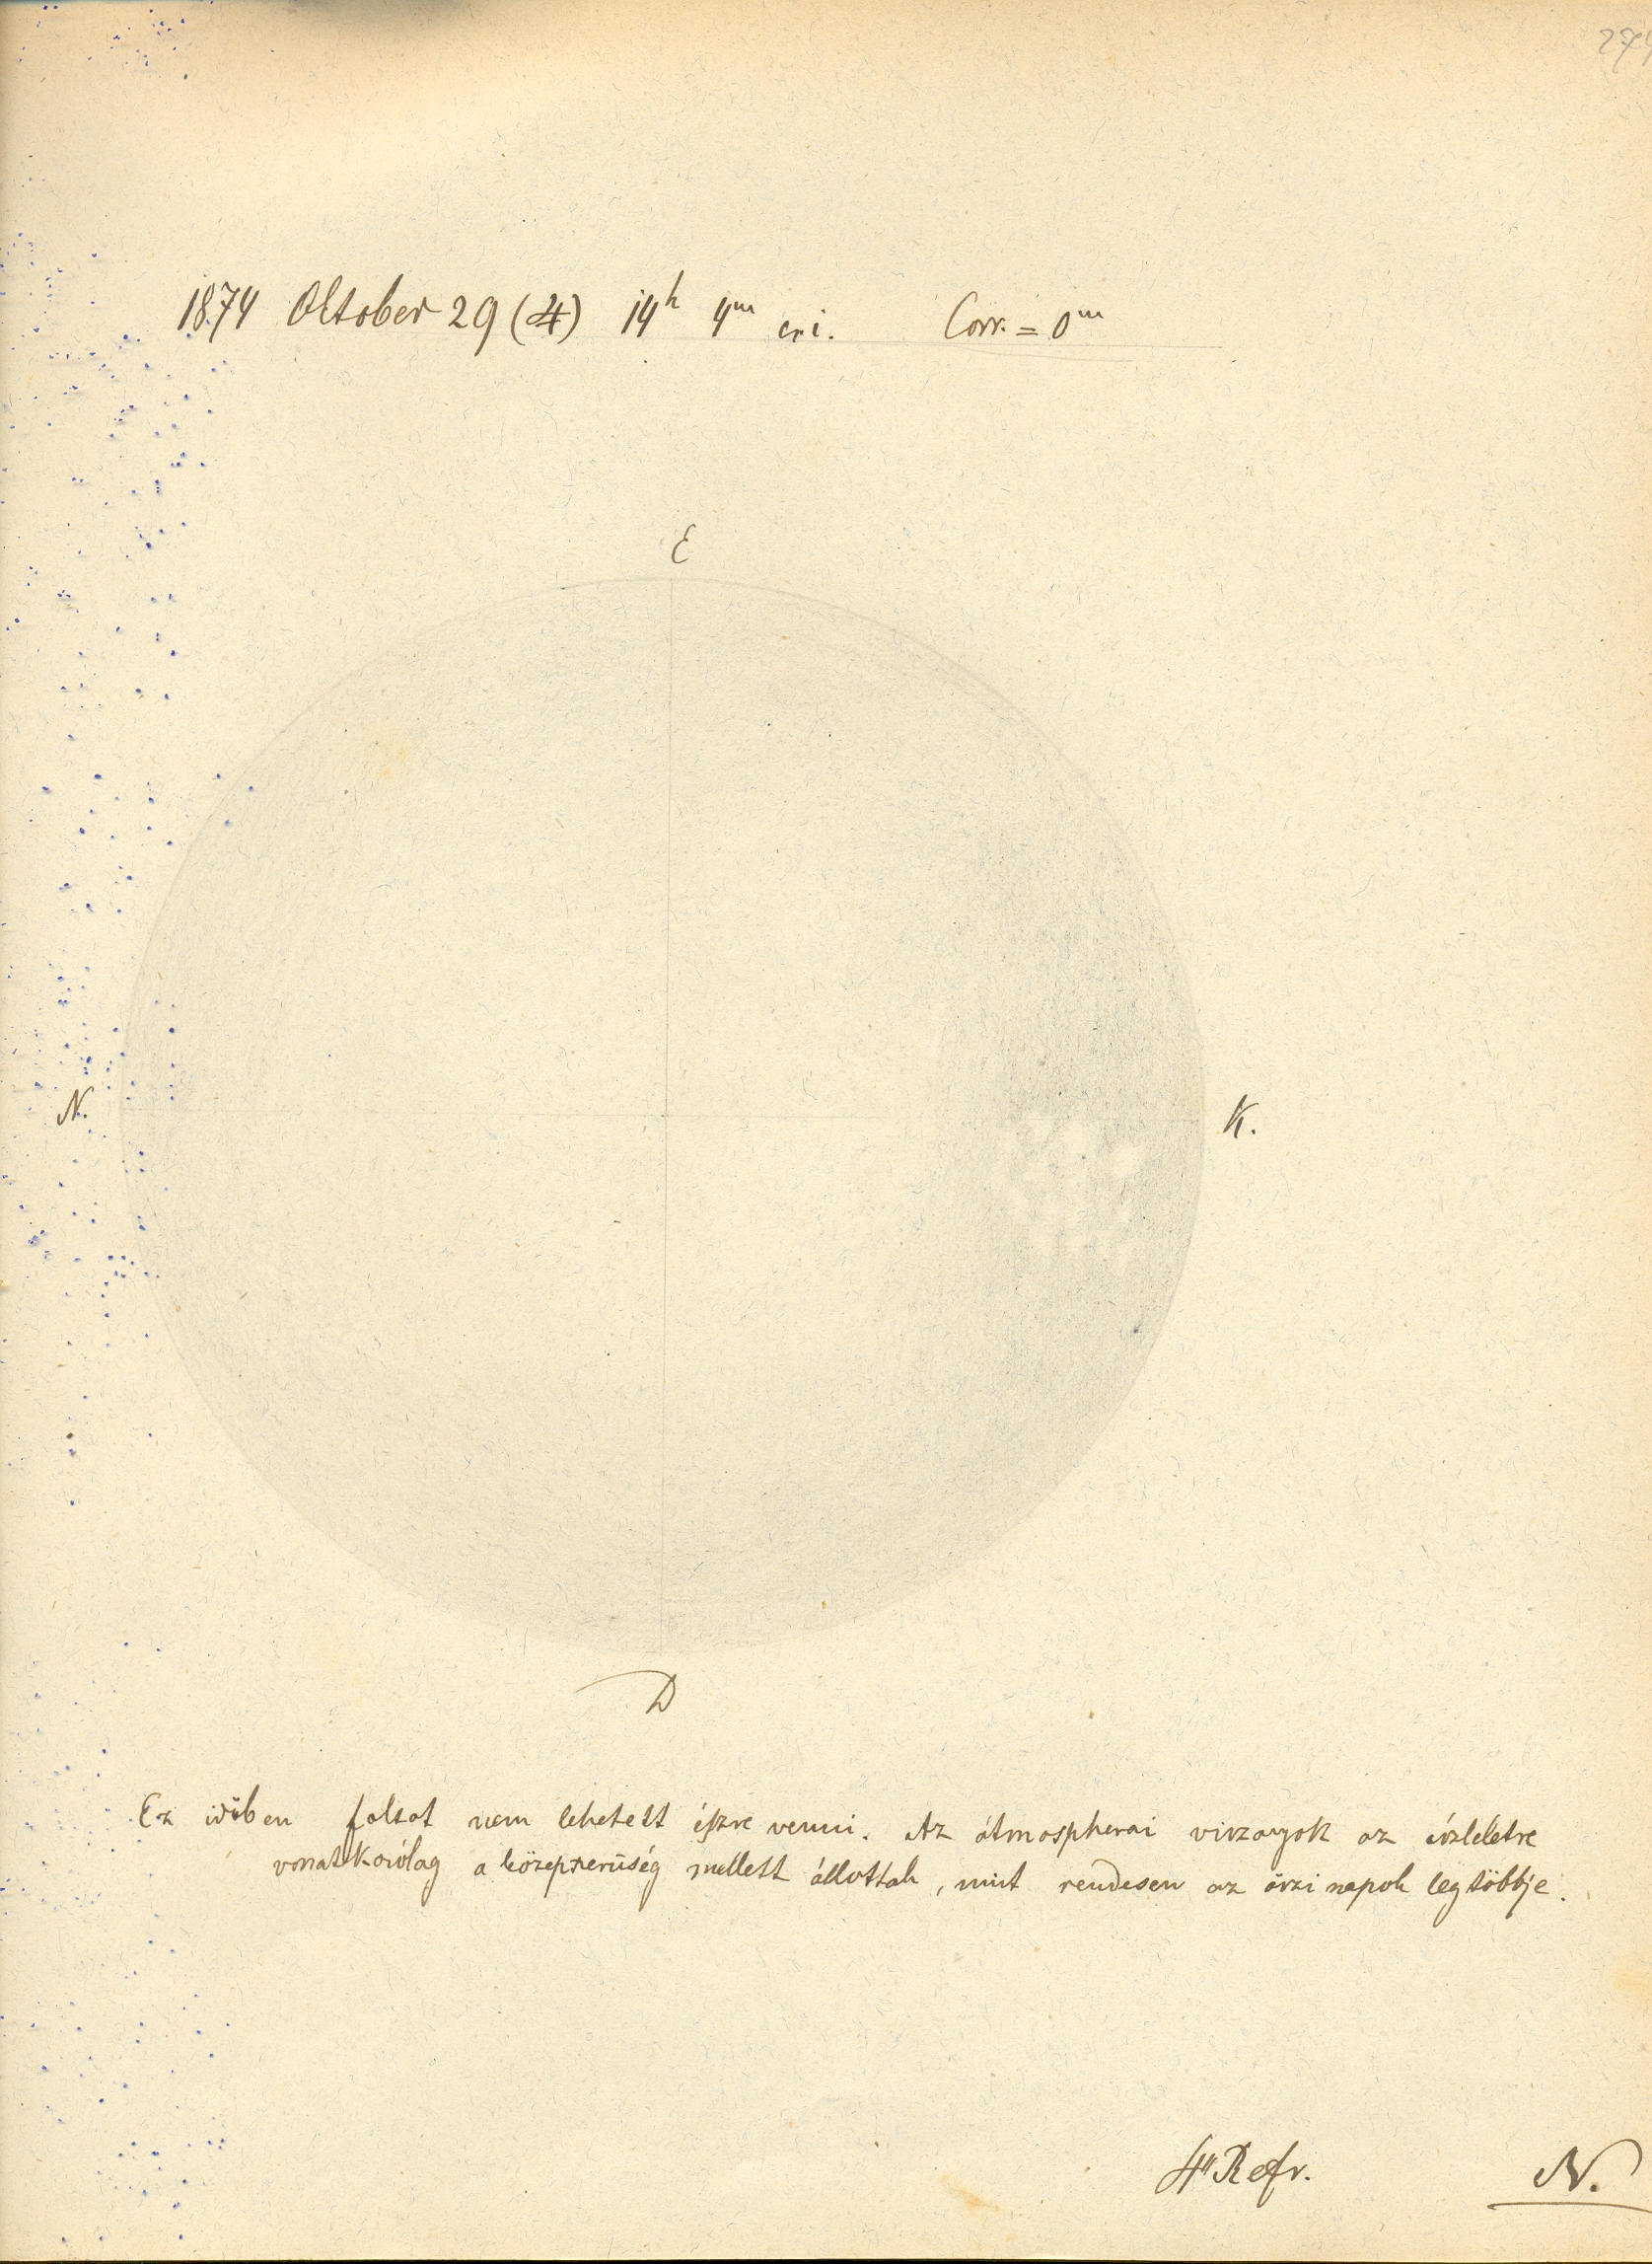 274
1874 Oktober 29 (♃) 14h 4m cri. Corr. = 0m
E
N. K.
D
Ez időben foltot nem lehetett észre venni. Az átmospherai viszonyok az észleletre
vonatkozólag a középszerűség mellett állottak, mint rendesen az őszi napok legtöbbje.
4" Refr. N.